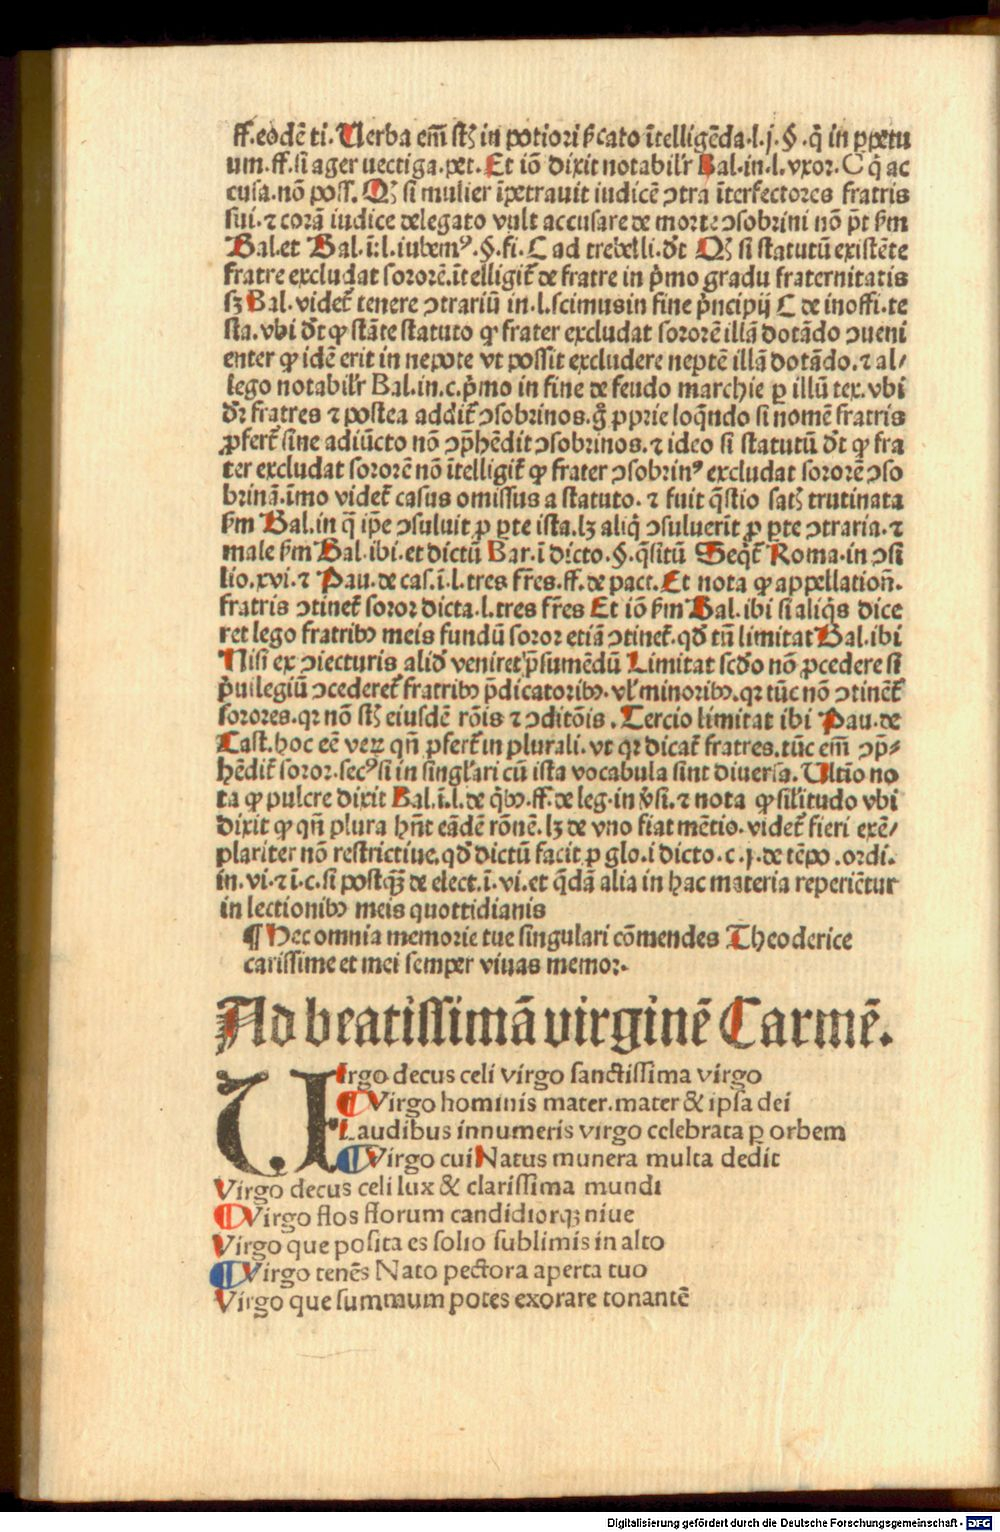 ff.eodē ti. Verba em̄ stꝫ in potiori ẜcato ītelligēda.l.j.§.q̄ in ꝑpetu
um.ff.si ager uectiga.pet. Et iō dixit notabilr̄ Bal.in.l.vxor. C q̄ ac
cusa.nō poss. Qꝫ si mulier īpetrauit iudicē ↄtra īterfectores fratris
sui.⁊ corā iudice delegato vult accusare de morte ↄsobrini nō p̄t ẜm
Bal.et Bal.ī.l.iubemꝰ.§.fi. C ad trebelli.d̄t Qꝫ si statutū existēte
fratre excludat sororē.ītelligit̄ de fratre in p̄mo gradu fraternitatis
sꝫ Bal.videt̄ tenere ↄtrariū in.l.scimusin fine p̄ncipij C de inoffi.te
sta.vbi d̄t ꝙ stāte statuto ꝙ frater excludat sororē illā dotādo ↄueni
enter ꝙ idē erit in nepote vt possit excludere neptē illā dotādo.⁊ al/
lego notabilr̄ Bal.in.c.p̄mo in fine de feudo marchie ꝑ illū tex.vbi
dr̄ fratres ⁊ postea addit̄ ↄsobrinos.g̊ ꝓprie loq̄ndo si nomē fratris
ꝓfert̄ sine adiūcto nō ↄp̄hēdit ↄsobrinos.⁊ ideo si statutū d̄t ꝙ fra
ter excludat sororē nō ītelligit̄ ꝙ frater ↄsobrinꝰ excludat sororē ↄso
brinā.īmo videt̄ casus omissus a statuto.⁊ fuit q̄stio satꝫ trutinata
ẜm Bal.in q̄ ip̄e ↄsuluit ꝓ ꝑte ista.lꝫ aliq̄ ↄsuluerīt ꝓ ꝑte ↄtraria.⁊
male ẜm Bal.ibi.et dictū Bar.ī dicto.§.q̄sitū Seqt̄ Roma.in ↄsi
lio.xvi.⁊ Pau.de cas.ī.l.tres fr̄es.ff.de pact. Et nota ꝙ appellation̄.
fratris ↄtinet̄ soror dicta.l.tres fr̄es Et iō ẜm Bal.ibi si aliq̄s dice
ret lego fratribꝰ meis fundū soror etiā ↄtinet̄.qd̄ tn̄ limitat Bal.ibi
Nisi ex ↄiecturis alid̄ veniret p̄sumēdū Limitat scd̄o nō ꝓcedere si
p̄uilegiū ↄcederet̄ fratribꝰ p̄dicatoribꝰ.vl' minoribꝰ.qꝛ tūc nō ↄtinēt̄
sorores.qꝛ nō stꝫ eiusdē rōis ⁊ ↄditōis. Tercio limitat ibi Pau.de
Cast.hoc eē veꝝ qn̄ ꝓfert̄ in plurali.vt qꝛ dicat̄ fratres.tūc em̄ ↄp̄⸗
hēdit̄ soror.secꝰ si in singlari cū ista vocabula sint diuersa. Ultīo no
ta ꝙ pulcre dixit Bal.ī.l.de qbꝰ.ff.de leg.in v̄si.⁊ nota ꝙ sil̄itudo vbi
dixit ꝙ qn̄ plura hn̄t eādē rōnē.lꝫ de vno fiat mētio.videt̄ fieri exē/
plariter nō restrictiue.qd̄ dictū facit ꝓ glo.i dicto.c.j.de tēpo.ordi.
in.vi.⁊ ī.c.si postqꝫ̄ de elect.ī.vi.et q̄dā alia in hac materia reperiētur
in lectionibꝰ meis quottidianis
¶ Hec omnia memorie tue singulari cōmendes Theoderice
carissime et mei semper viuas memor.
Ad beatissimā virginē Carmē.
Virgo decus celi virgo sanctissima virgo
¶ Virgo hominis mater.mater & ipsa dei
Laudibus innumeris virgo celebrata ꝑ orbem
¶ Virgo cui Natus munera multa dedit
Virgo decus celi lux & clarissima mundi
¶ Virgo flos florum candidiorqꝫ niue
Virgo que posita es solio sublimis in alto
¶ Virgo tenēs Nato pectora aperta tuo
Virgo que summum potes exorare tonantē
Digitalisierung gefördert durch die Deutsche Forschungsgemeinschaft - DFG